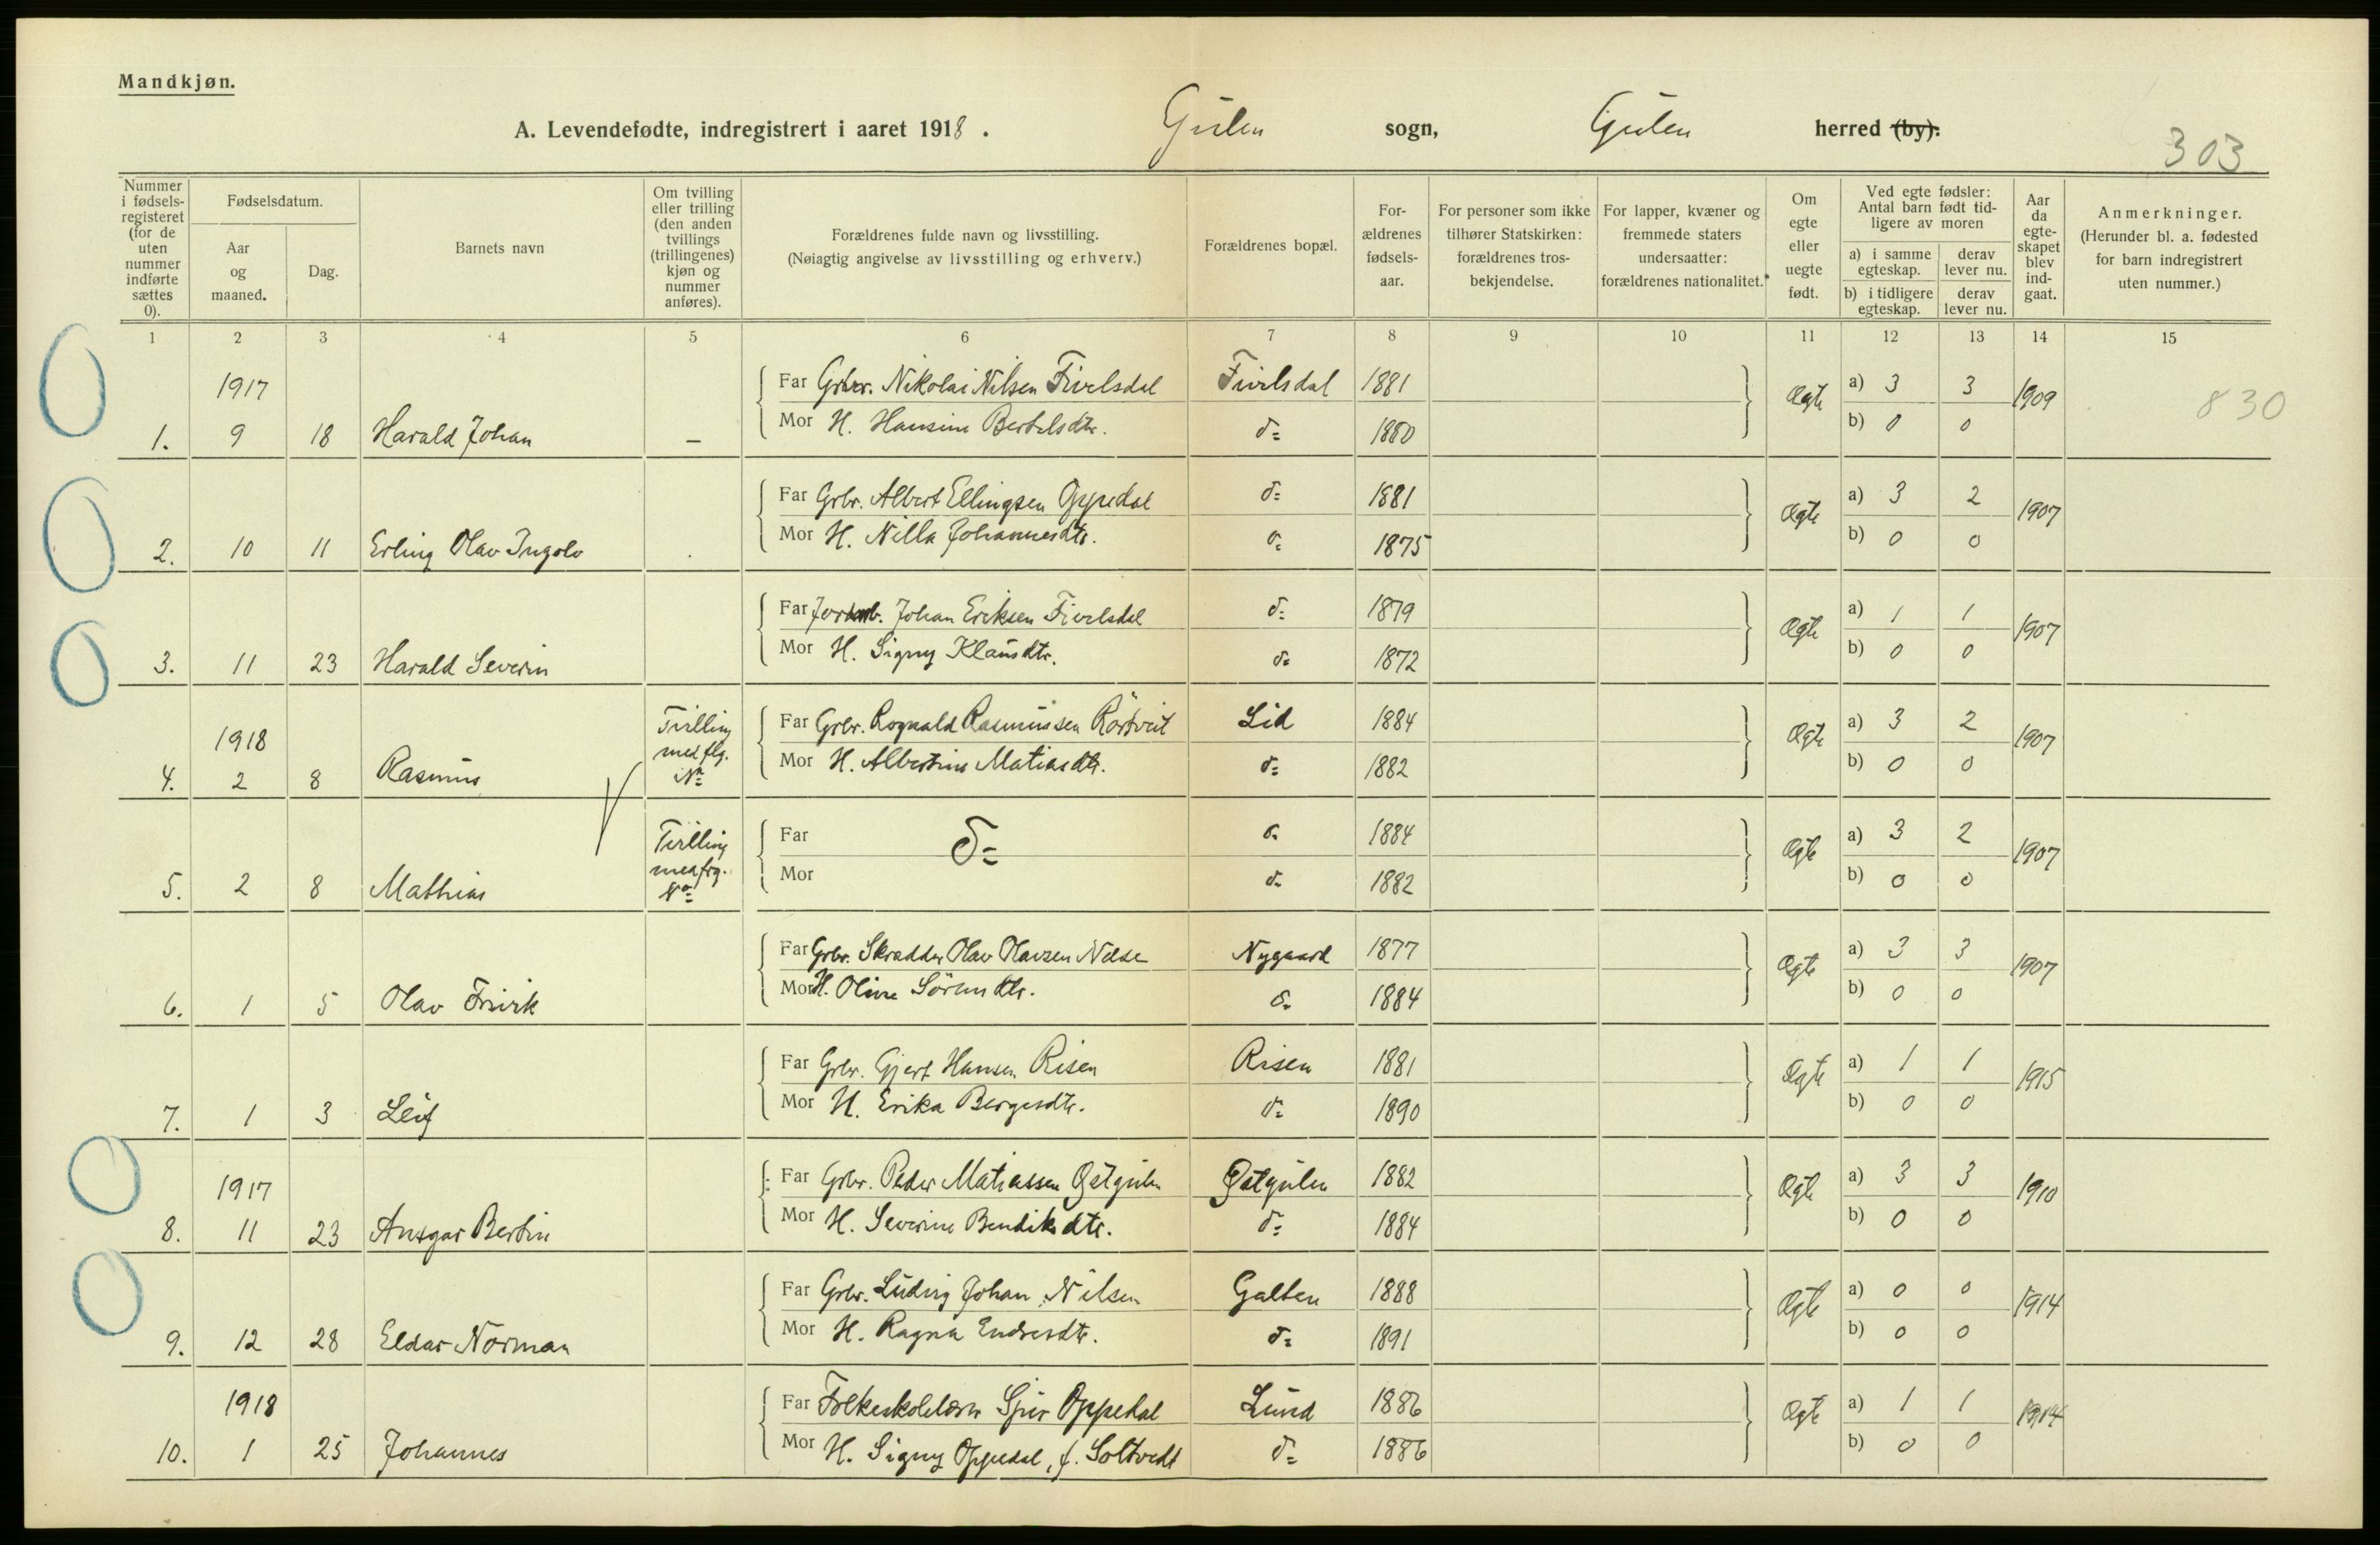 Mandkjøn.
A. Levendefødte, indregistrert i aaret 1918. Gulen sogn, Gulen herred (by).
303
Nummer i fødselsregisteret (for de uten nummer indførte sættes 0).
Fødselsdatum.
Aar og maaned.
Dag.
Barnets navn
Om tvilling eller trilling (den anden tvillings (trillingenes) kjøn og nummer anføres).
Forældrenes fulde navn og livsstilling.
(Nøiagtig angivelse av livsstilling og erhverv.)
Forældrenes bopæl.
Forældrenes fødselsaar.
For personer som ikke tilhører Statskirken: forældrenes trosbekjendelse.
For lapper, kvæner og fremmede staters undersaatter: forældrenes nationalitet.
Om egte eller uegte født.
Ved egte fødsler: Antal barn født tidligere av moren
a) i samme egteskap. derav lever nu.
b) i tidligere egteskap. derav lever nu.
Aar da egteskapet blev indgaat.
Anmerkninger.
(Herunder bl. a. fødested for barn indregistrert uten nummer.)
1 2 3 4 5 6 7 8 9 10 11 12 13 14 15
1917
Far Grbr. Nikolai Nilsen Fivelsdal Fivelsdal 1881 Ægte a) 3 3 1909 830
1. 9 18 Harald Johan – Mor H. Hansine Bertelsdtr. d= 1880 b) 0 0
Far Grbr. Albert Ellingsen Oppedal d= 1881 Ægte a) 3 2 1907
2. 10 11 Erling Olav Ingolv Mor H. Nilla Johannesdtr. d= 1875 b) 0 0
Far Johan Eriksen Fivelsdal d= 1879 Ægte a) 1 1 1907
3. 11 23 Harald Severin Mor H. Signy Klausdtr. d= 1872 b) 0 0
1918 Tvilling med flg. No Far Grbr. Rognald Rasmussen Rörtveit Lid 1884 Ægte a) 3 2 1907
4. 2 8 Rasmus Mor H. Albertine Matiasdtr. d= 1882 b) 0 0
Tvilling med frg. No Far d= d= 1884 Ægte a) 3 2 1907
5. 2 8 Mathias Mor d= 1882 b) 0 0
Far Grbr. Skrædder Olav Olavsen Nygaard 1877 Ægte a) 3 3 1907
6. 1 5 Olav Mor H. Oline Sörensdtr. d= 1884 b) 0 0
Far Grbr. Gjert Hansen Risen Risen 1881 Ægte a) 1 1 1915
7. 1 3 Leif Mor H. Erika Birgesdtr. d= 1890 b) 0 0
1917 Far Grbr. Peder Matiassen Østgulen Østgulen 1882 Ægte a) 3 3 1910
8. 11 23 Ansgar Bertin Mor H. Severine Bendiksdtr. d= 1884 b) 0 0
Far Grbr. Ludvig Johan Nilsen Galten 1888 Ægte a) 0 0 1914
9. 12 28 Eldar Norman Mor H. Ragna Endresdtr. d= 1891 b) 0 0
1918 Far Folkeskolelærer Sjur Oppedal Lund 1886 Ægte a) 1 1 1914
10. 1 25 Johannes Mor H. Signy Oppedal, f. Soltvedt d= 1886 b) 0 0